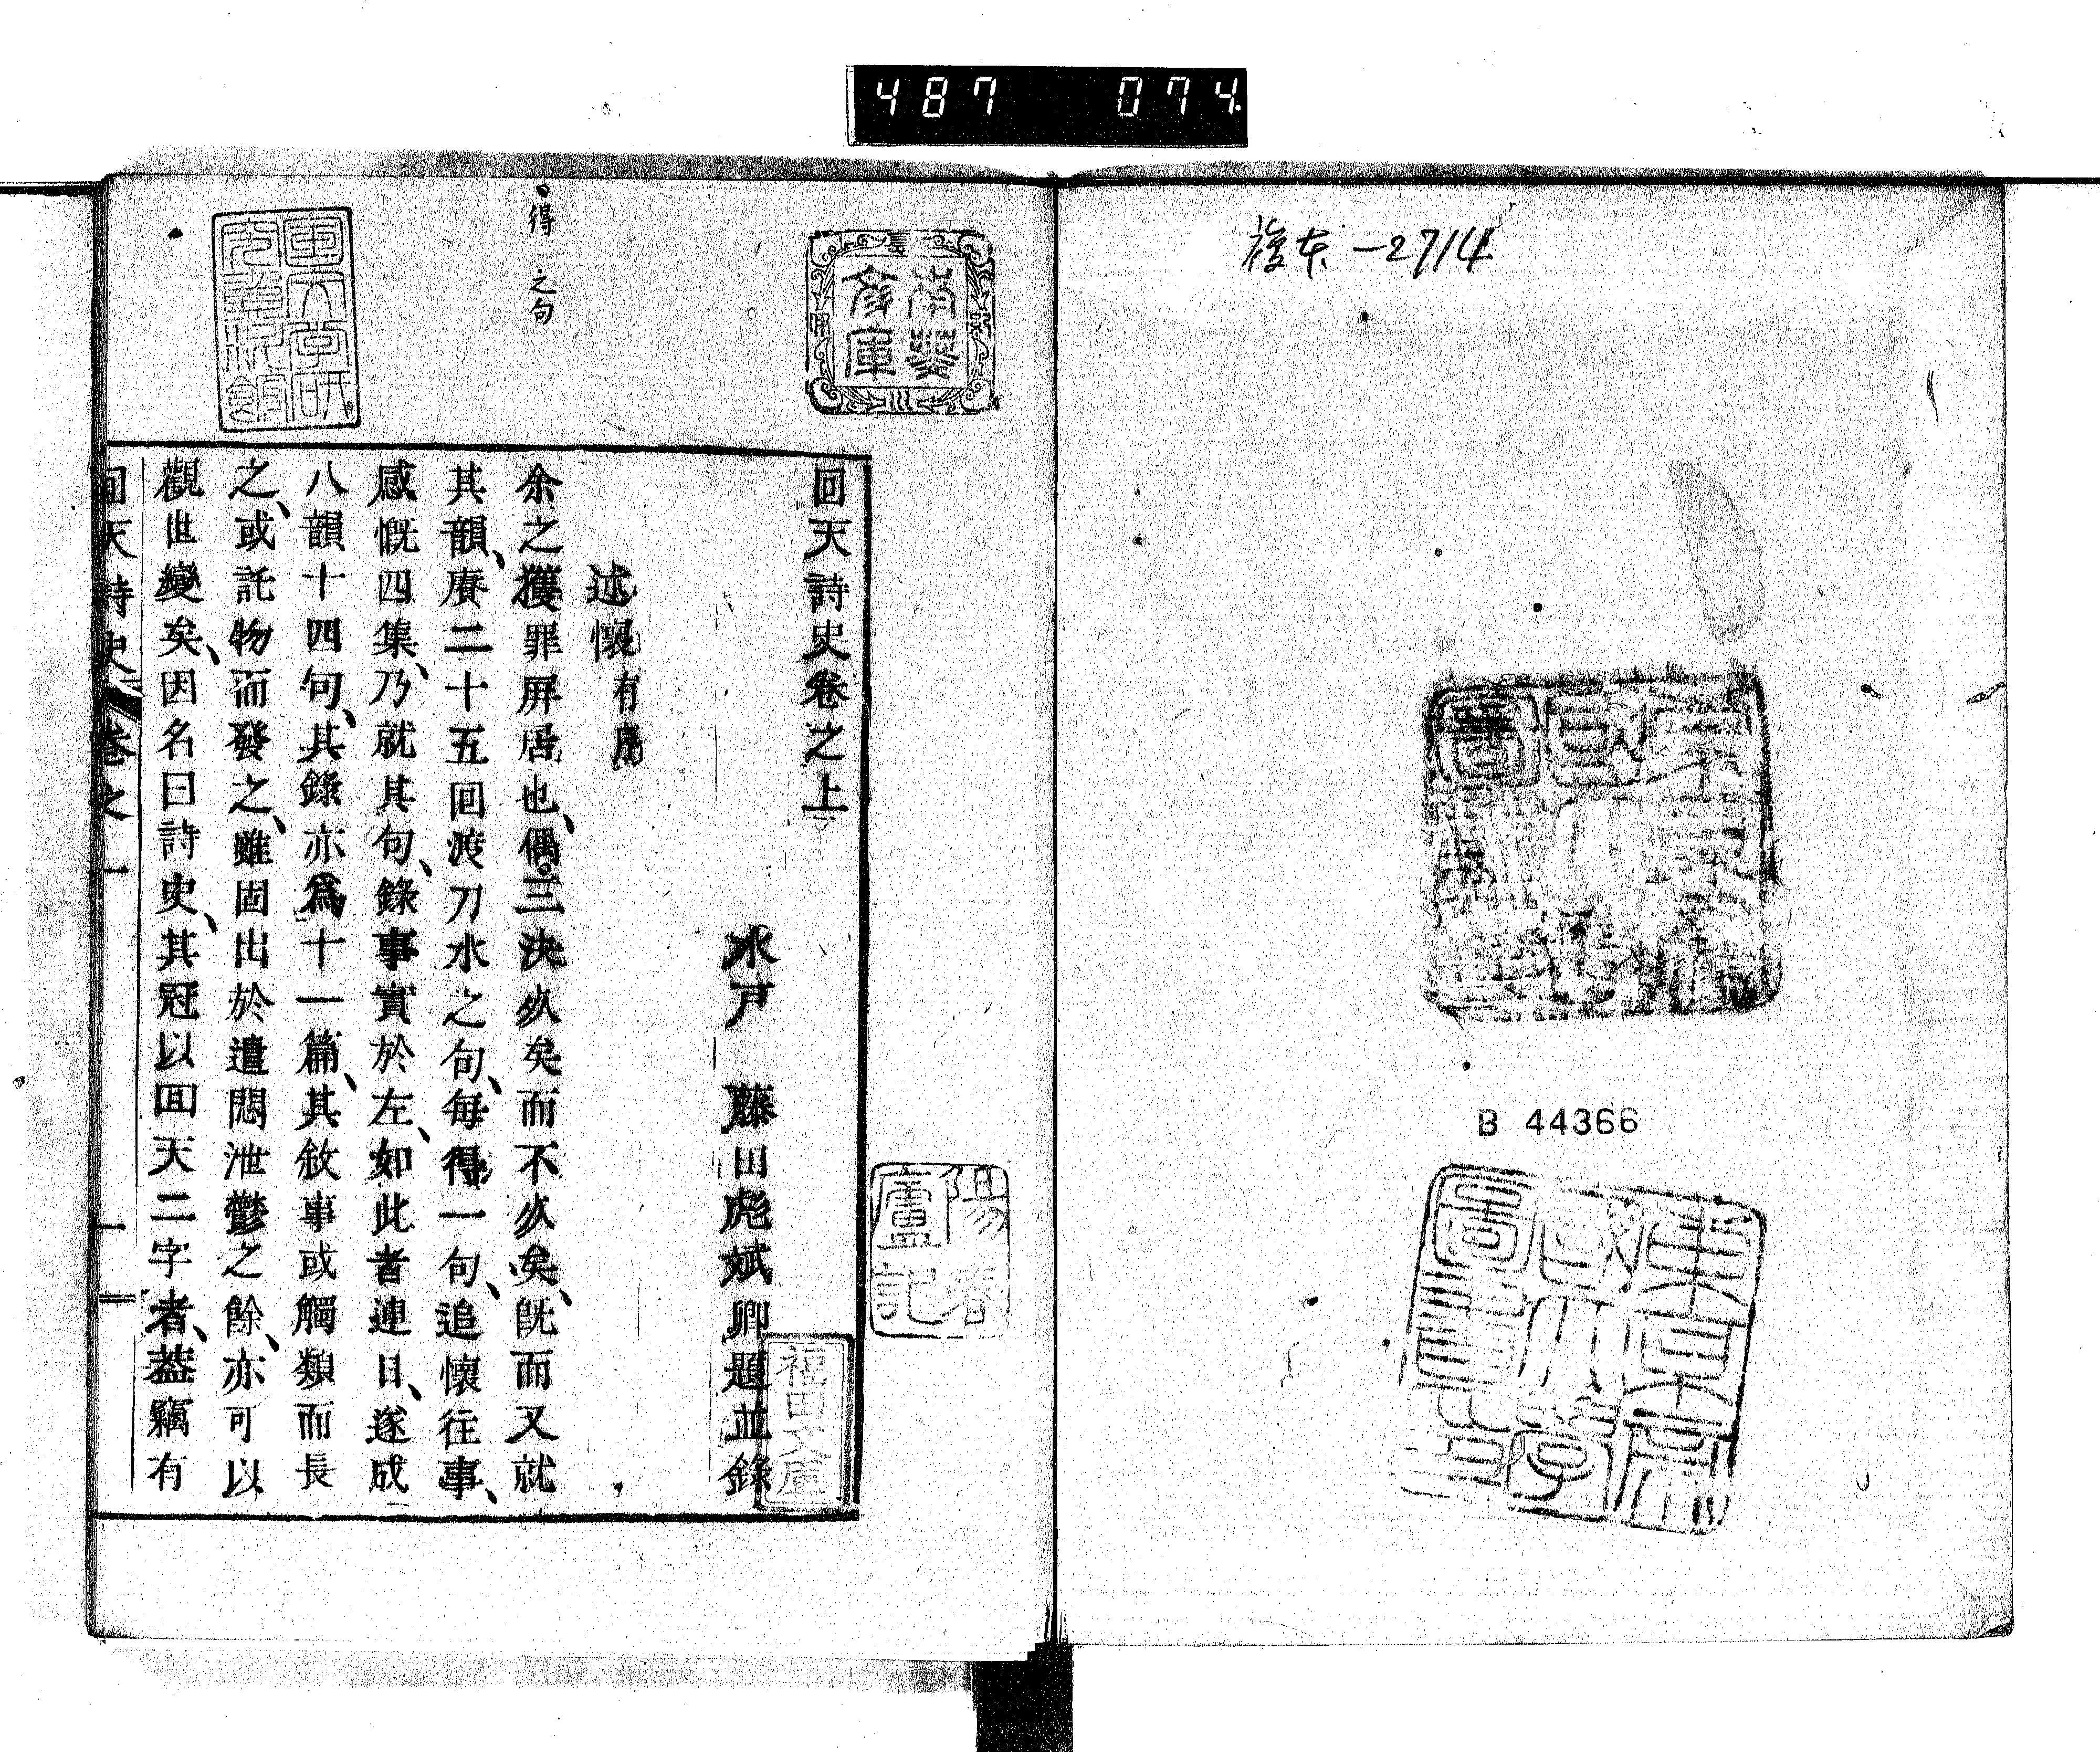 487 074
複本-2714
B 44366
得 之句
陽春
廬記
福田文庫
回天詩史卷之上
水戸 藤田彪斌卿題並錄
述懷有序
余之獲罪屛居也、偶三決死矣而不死矣、既而又就
其韻、賡二十五回渡刀水之句、每得一句、追懷往事、
感慨四集、乃就其句、錄事實於左、如此者連日、遂成
八韻十四句、其錄亦爲十一篇、其敘事或觸類而長
之、或託物而發之、雖固出於遣悶泄鬱之餘、亦可以
觀世變矣、因名曰詩史、其冠以回天二字者、葢竊有
回天詩史 卷之一 一